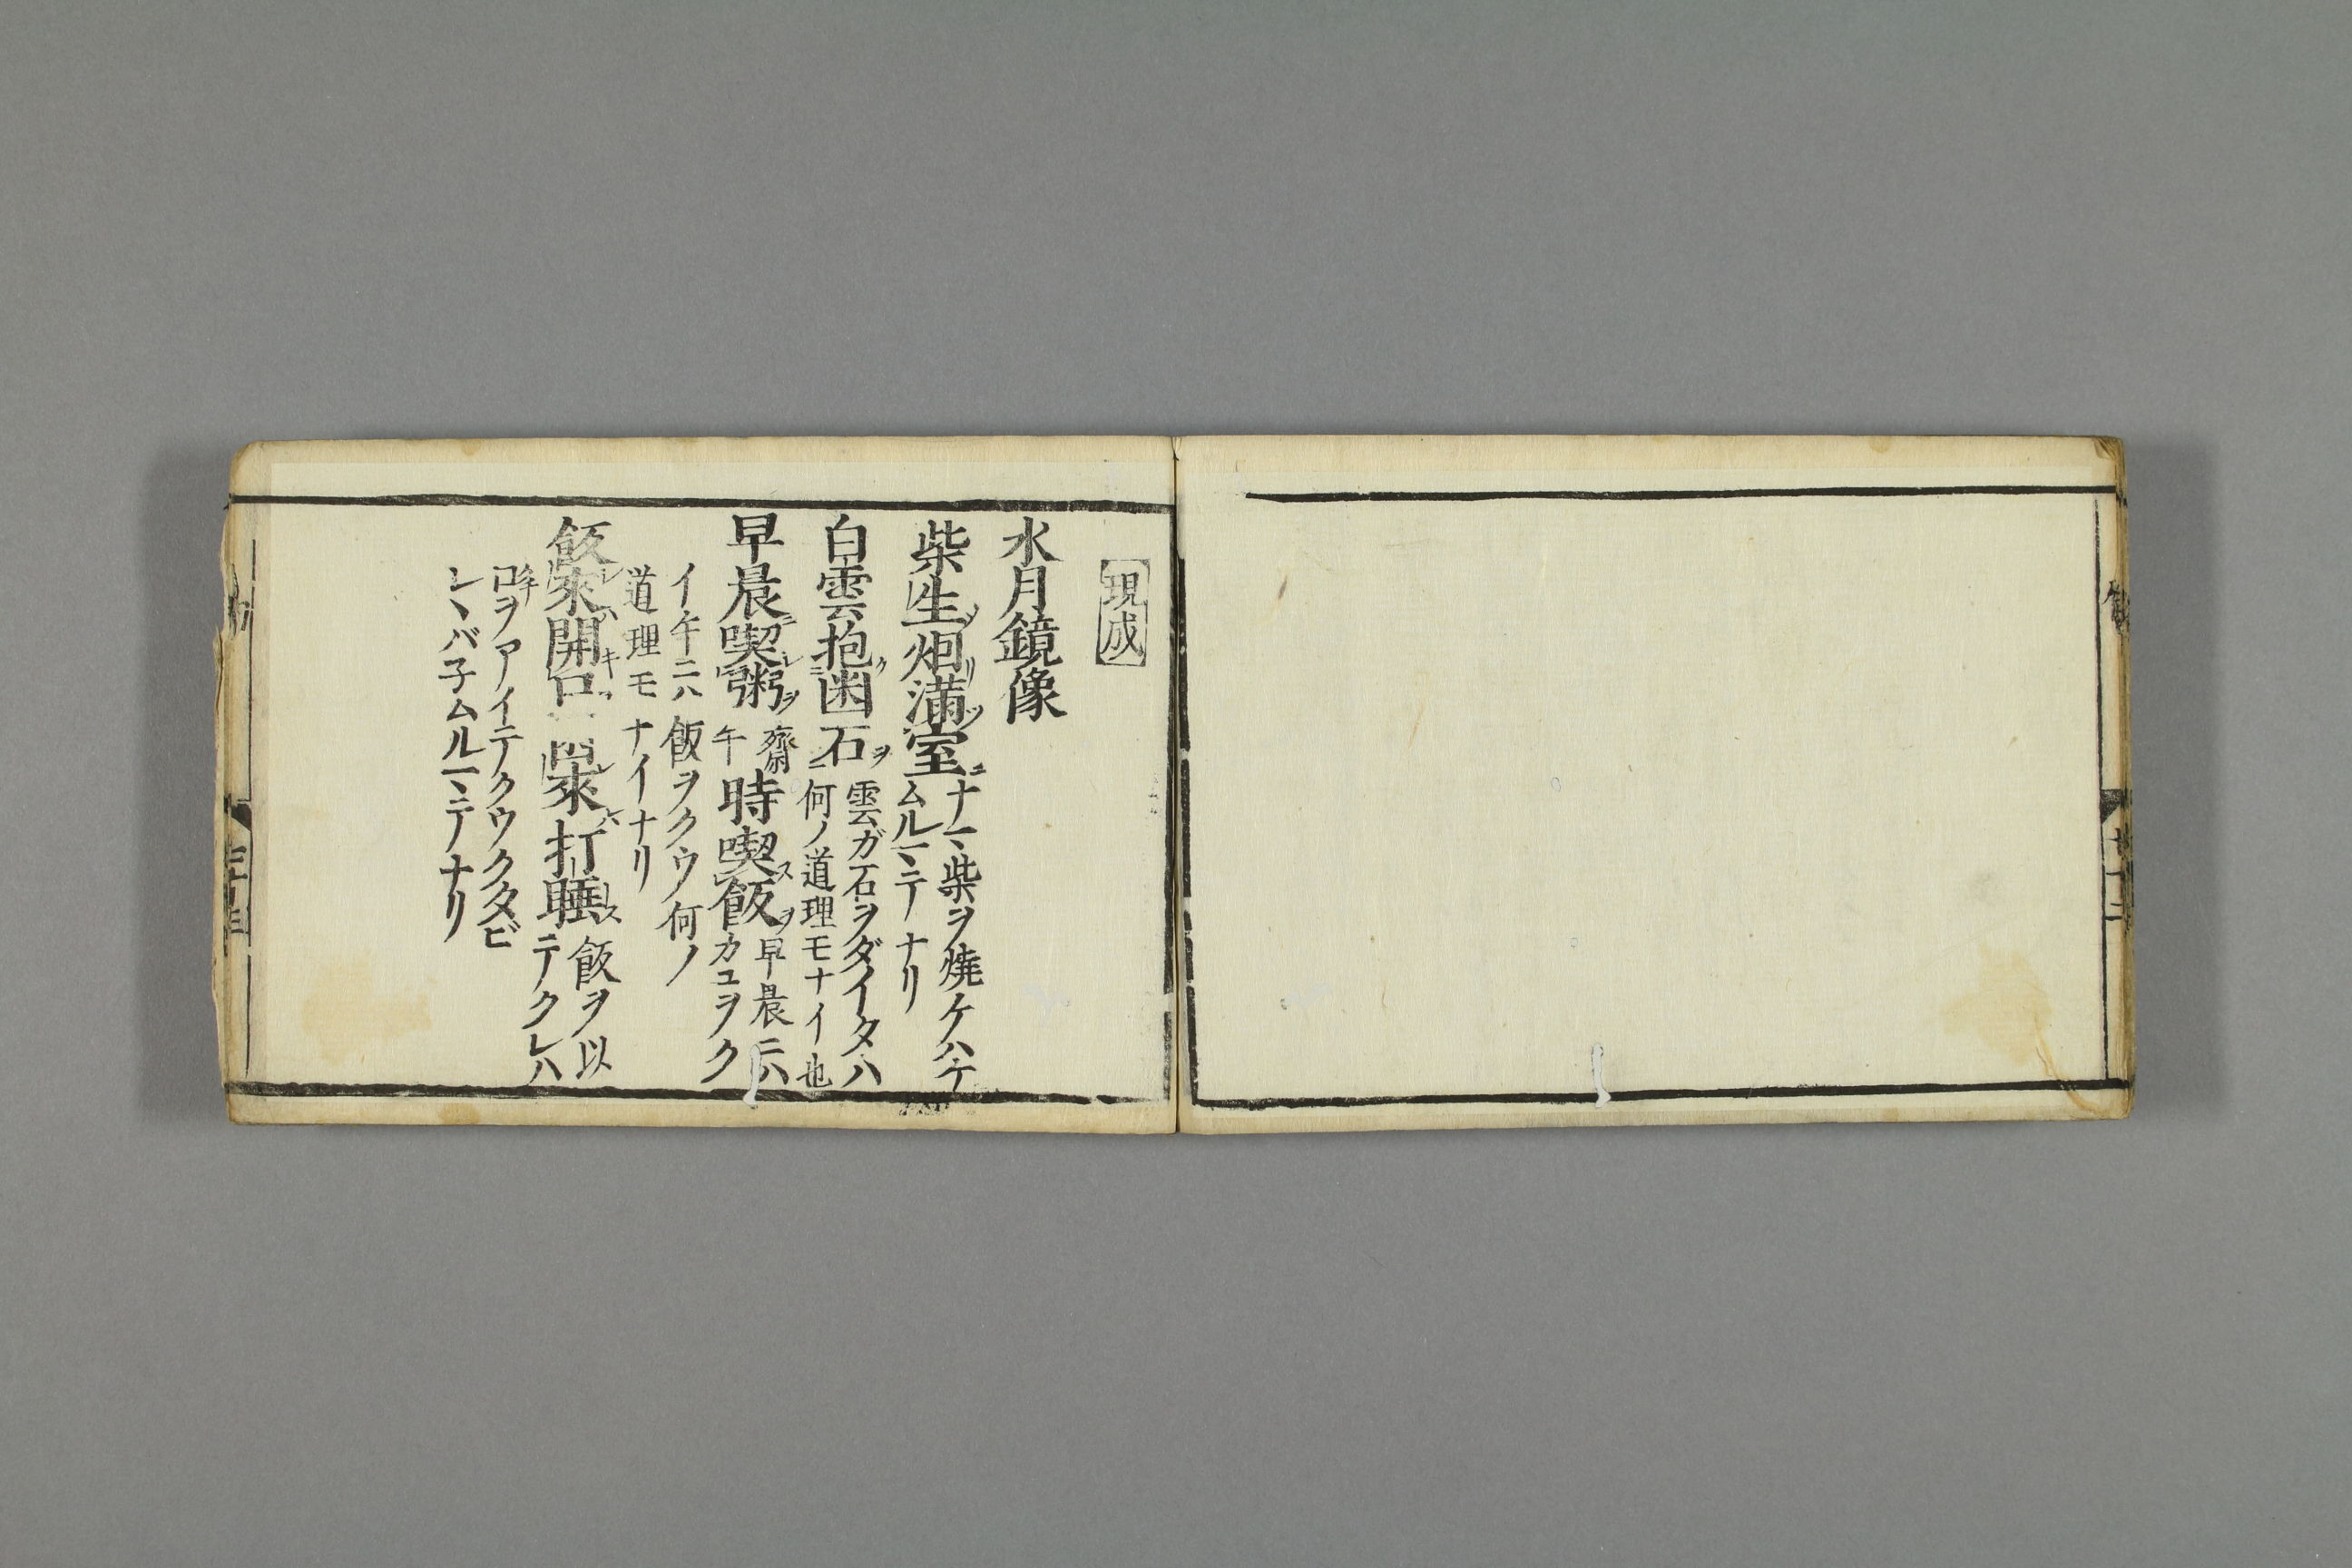 現成
水月鏡像
柴生烟満室 ナマ柴ヲ焼ケハケ
ムルマテナリ
白雲抱幽石 雲ガ石ヲダイタハ
何ノ道理モナイ也
早晨喫粥 齋時喫飯 早晨ニハ
午 カユヲク
イ午ニハ飯ヲクウ何ノ
道理モナイナリ
飯来開口 来打睡 飯ヲ以
テクレハ
口ヲアイテクウクタビ
レヽバ子ムルマテナリ
三十三